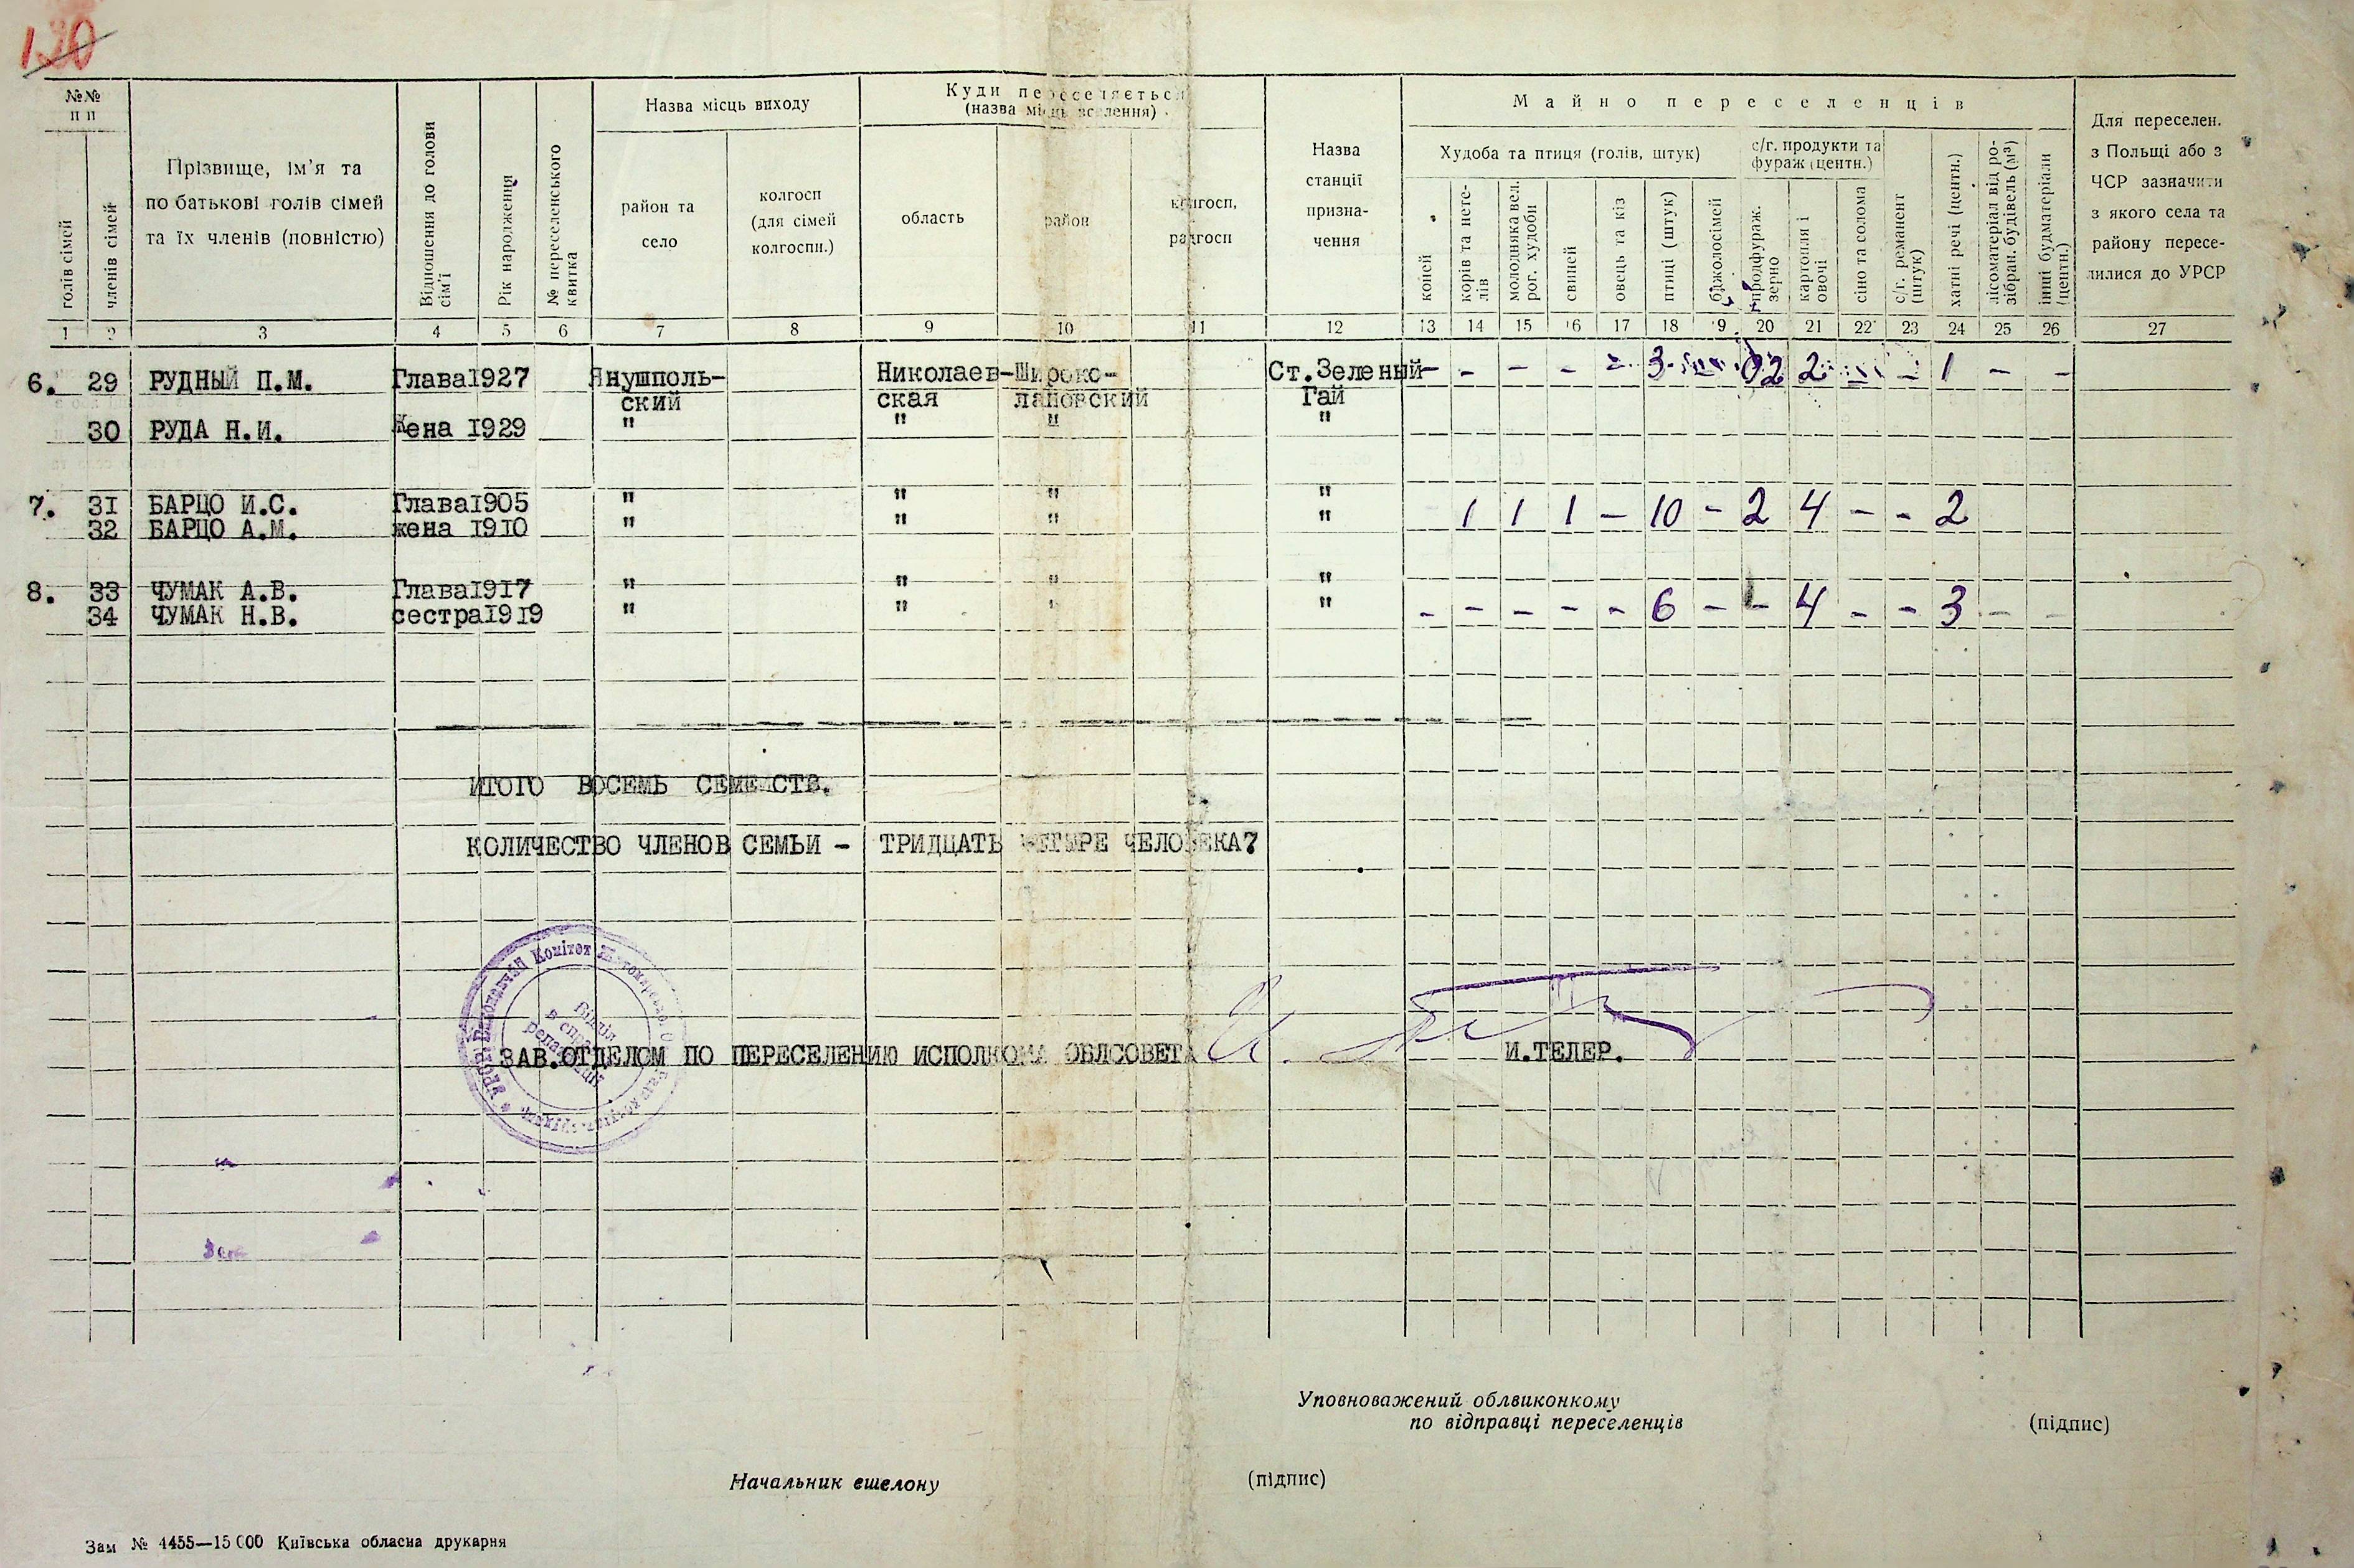 120
№№ п п
голів сімей
членів сімей
Прізвище, ім'я та
по батькові голів сімей
та їх членів (повністю)
Відношення до голови сім'ї
Рік народження
№ переселенського квитка
Назва місць виходу
район та
село
колгосп
(для сімей
колгоспн.)
Куди переселяється
(назва місць вселення)
область
район
колгосп,
радгосп
Назва
станції
призна-
чення
Майно переселенців
Худоба та птиця (голів, штук)
коней
корів та нете-
лів
молодняка вел.
рог. худоби
свиней
овець та кіз
птиці (штук)
бджолосімей
с/г. продукти та
фураж (центн.)
продфураж.
зерно
картопля і
овочі
сіно та солома
с/г. реманент
(штук)
хатні речі (центн.)
лісоматеріал від ро-
зібран. будівель (м³)
інші будматеріали
(центн.)
Для переселен.
з Польщі або з
ЧСР зазначити
з якого села та
району пересе-
лилися до УРСР
1 2 3 4 5 6 7 8 9 10 11 12 13 14 15 16 17 18 19 20 21 22 23 24 25 26 27
6. 29 РУДНЫЙ П.М. Глава1927 Янушполь- Николаев- Широко- Ст.Зеленый - - - - - 3 2 2 - 1 - -
ский ская лановский Гай
30 РУДА Н.И. Жена 1929 " " " "
7. 31 БАРЦО И.С. Глава1905 " " " "
32 БАРЦО А.М. жена 1910 " " " " 1 1 1 - 10 - 2 4 - - 2
8. 33 ЧУМАК А.В. Глава1917 " " " "
34 ЧУМАК Н.В. сестра1919 " " " " - - - - - 6 - - 4 - - 3 - -
ИТОГО ВОСЕМЬ СЕМЕЙСТВ.
КОЛИЧЕСТВО ЧЛЕНОВ СЕМЬИ - ТРИДЦАТЬ ЧЕТЫРЕ ЧЕЛОВЕКА7
Виконавчий Комітет
Відділ
ЗАВ.ОТДЕЛОМ ПО ПЕРЕСЕЛЕНИЮ ИСПОЛКОМА ОБЛСОВЕТА И.ТЕЛЕР.
Уповноважений облвиконкому
по відправці переселенців (підпис)
Начальник ешелону (підпис)
Зам № 4455—15 000 Київська обласна друкарня